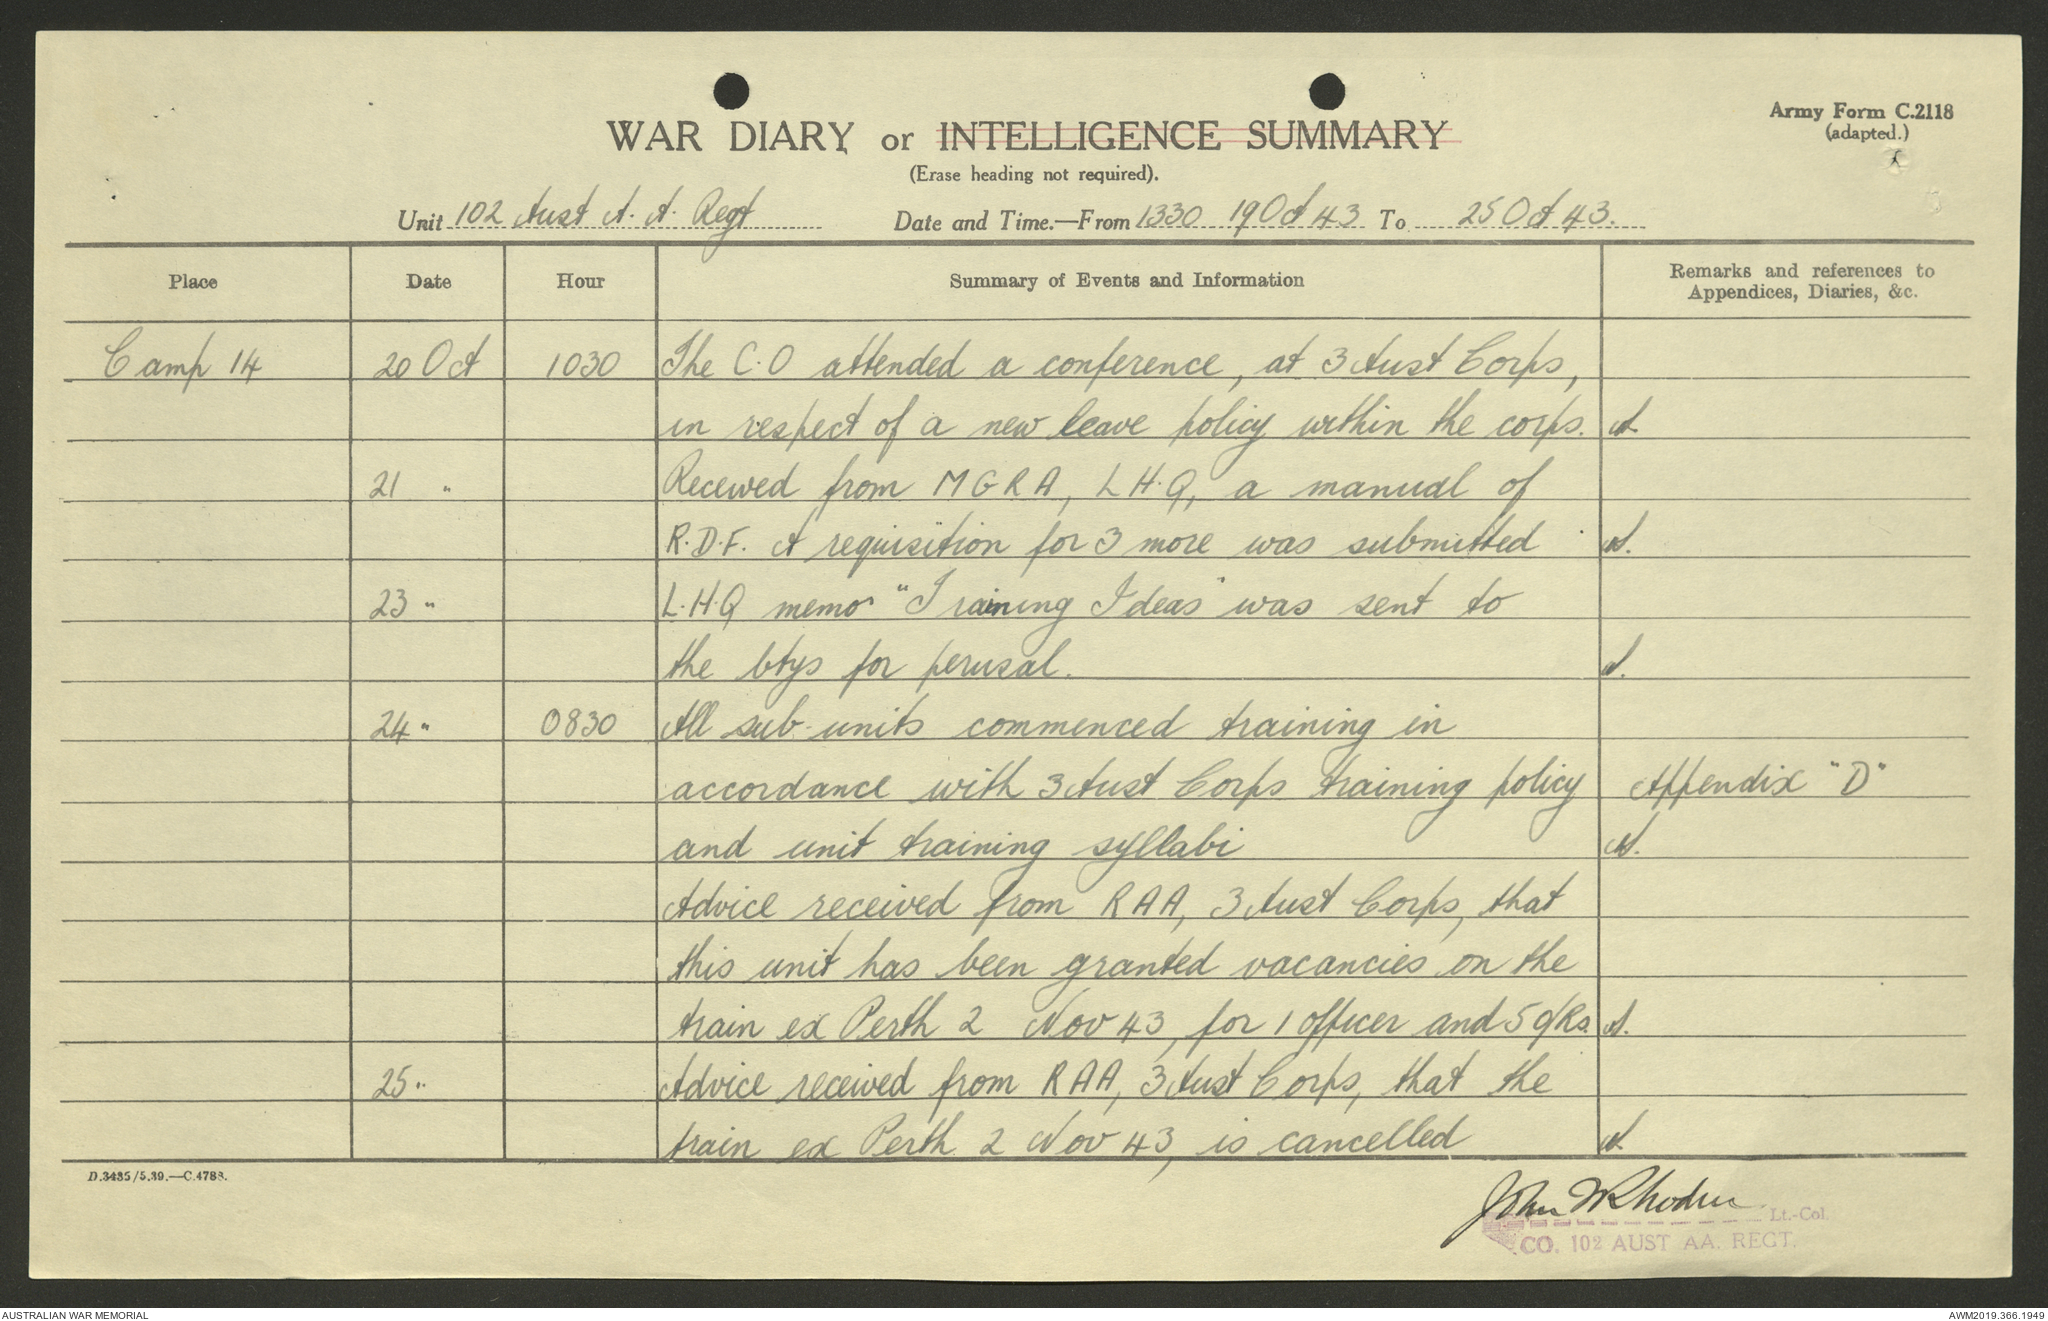 Army Form C.2118
(adapted.)
WAR DIARY or INTELLIGENCE SUMMARY
(Erase heading not required).
Unit 102 Aust A. A. Regt Date and Time.—From 1330 19 Oct 43 To 25 Oct 43.
Place Date Hour Summary of Events and Information Remarks and references to
Appendices, Diaries, &c.
Camp 14 20 Oct 1030 The C.O attended a conference, at 3 Aust Corps,
in respect of a new leave policy within the corps.
21 " Received from MGRA, LH.Q, a manual of
R.D.F. A requisition for 3 more was submitted
23 " L.H.Q memo "Training Ideas" was sent to
the btys for perusal.
24 " 0830 All sub-units commenced training in
accordance with 3 Aust Corps training policy Appendix "D"
and unit training syllabi
Advice received from RAA, 3 Aust Corps, that
this unit has been granted vacancies on the
train ex Perth 2 Nov 43, for 1 officer and 5 O/Rs.
25 " Advice received from RAA, 3 Aust Corps, that the
train ex Perth 2 Nov 43, is cancelled
D.3435/5.39.—C.4788.
John W Rhoden
Lt.-Col.
CO. 102 AUST AA. REGT.
AUSTRALIAN WAR MEMORIAL AWM2019.366.1949